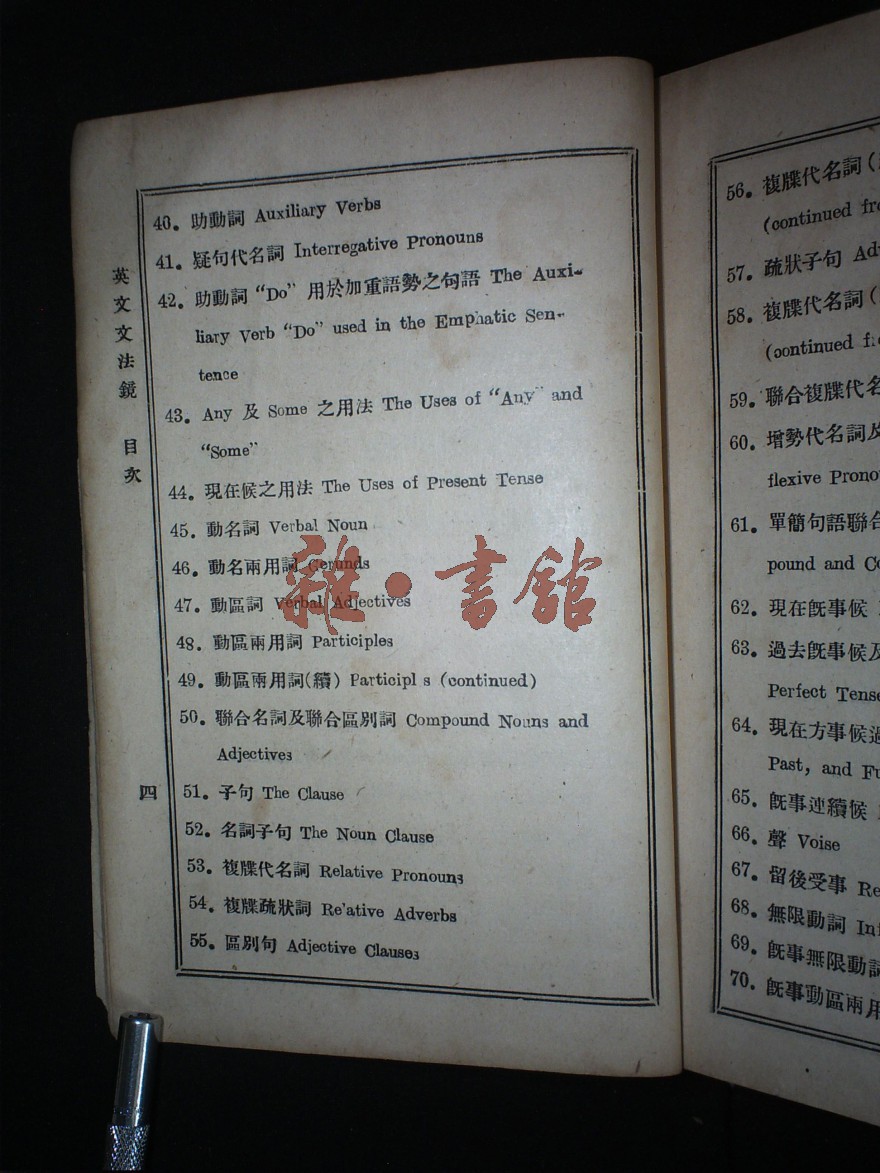 英文文法鏡 目次
四
40. 助動詞 Auxiliary Verbs
41. 疑句代名詞 Interregative Pronouns
42. 助動詞 “Do” 用於加重語勢之句語 The Auxi-
liary Verb “Do” used in the Emphatic Sen-
tence
43. Any 及 Some 之用法 The Uses of “Any” and
“Some”
44. 現在候之用法 The Uses of Present Tense
45. 動名詞 Verbal Noun
46. 動名兩用詞 Gerunds
47. 動區詞 Verbal Adjectives
48. 動區兩用詞 Participles
49. 動區兩用詞(續) Participl s (continued)
50. 聯合名詞及聯合區別詞 Compound Nouns and
Adjectives
51. 子句 The Clause
52. 名詞子句 The Noun Clause
53. 複牒代名詞 Relative Pronouns
54. 複牒疏狀詞 Re'ative Adverbs
55. 區別句 Adjective Clauses
雜·書館
56. 複牒代名詞(
(continued
57. 疏狀子句
58. 複牒代名詞(
(oontinued
59. 聯合複牒代名
60. 增勢代名詞及
flexive
61. 單簡句語聯合
pound and
62. 現在旣事候
63. 過去旣事候及
Perfect Tense
64. 現在方事候過
Past, and
65. 旣事連續候
66. 聲 Voise
67. 留後受事
68. 無限動詞
69. 旣事無限動詞
70. 旣事動區兩用